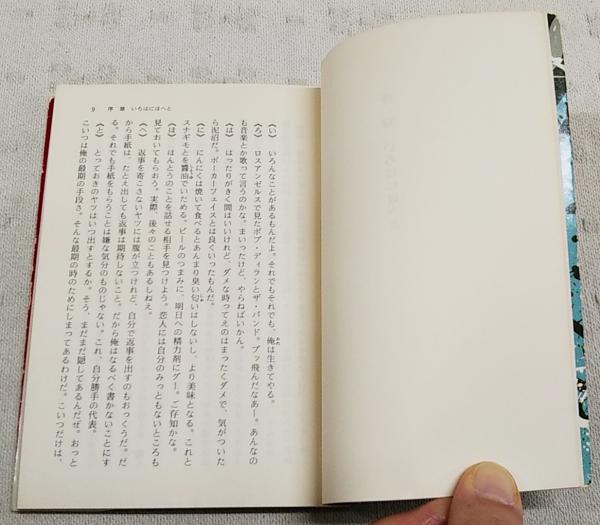 9 序章 いろはにほへと
（い） いろんなことがあるもんだよ。それでもそれでも、俺は生きてやる。
（ろ） ロスアンゼルスで見たボブ・ディランとザ・バンド。ブッ飛んだなあー。あんなの
も音楽とか歌って言うのかな。まいったけど、やらねばいかん。
（は） はったりがきく間はいいけれど、ダメな時ってえのはまったくダメで、気がついた
ら泥沼だ。ポーカーフェイスとは良くいったもんだ。
（に） にんにくは焼いて食べるとあんまり臭い匂いはしないし、より美味となる。これと
スナギモとを醬油でいためる。ビールのつまみに、明日への精力剤にグー。ご存知かな。
（ほ） ほんとうのことを話せる相手を見つけよう。恋人には自分のみっともないところも
見ておいてもらおう。実際、後々のこともあるしねえ。
（へ） 返事を寄こさないヤツには腹が立つけれど、自分で返事を出すのもおっくうだ。だ
から手紙は、たとえ出しても返事は期待しないこと。だから俺はなるべく書かないことにす
る。それでも手紙をもらうことは嫌な気分のものじゃない。これ、自分勝手の代表。
（と） とっておきのヤツはいつ出すとするか。そう、まだまだ隠してあるんだぜ。おっと
こいつは俺の最期の手段さ。そんな最期の時のためにしまってあるわけだ。こいつだけは、